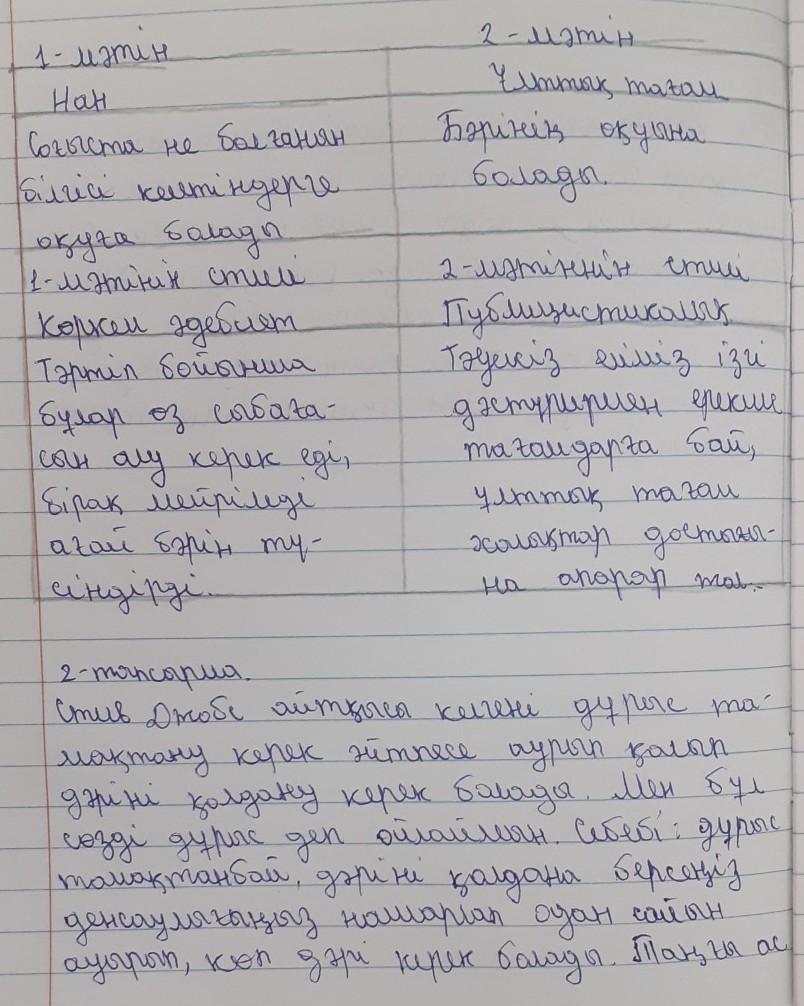 1-мәтін
2-мәтін
Нан
Ұлттық тағам
Соғыста не болғанын
білгісі келтіндерге
оқуға балады
Бәрінің оқуына
болады.
1-мәтінін стилі
Көркем әдебиет
2-мәтіннін стилі
Публицистикалық
Тәртіп бойынша
бұлар өз сыбаға-
сын алу керек еді,
бірақ мейрімді
ағай бәрін тү-
сіндірді.
Тәуелсіз еліміз ізгі
дәстүрирмен ерекше
тағамдарға бай,
ұлттық тағам
халықтар достығы-
на апарар жол.
2-тапсарма.
Стив Джобс айтқысы келгені дұрыс та-
мақтану керек әйтпесе ауырып қалып
дәріні қолдану керек балады. Мен бұл
сөзді дұрыс деп ойлаймын. Себебі: дұрыс
томақтанбай, дәріні қалдана берсеңіз
денсаулығыңыз нашарлап одан сайын
ауырып, көп дәрі керек балады. Таңғы ас